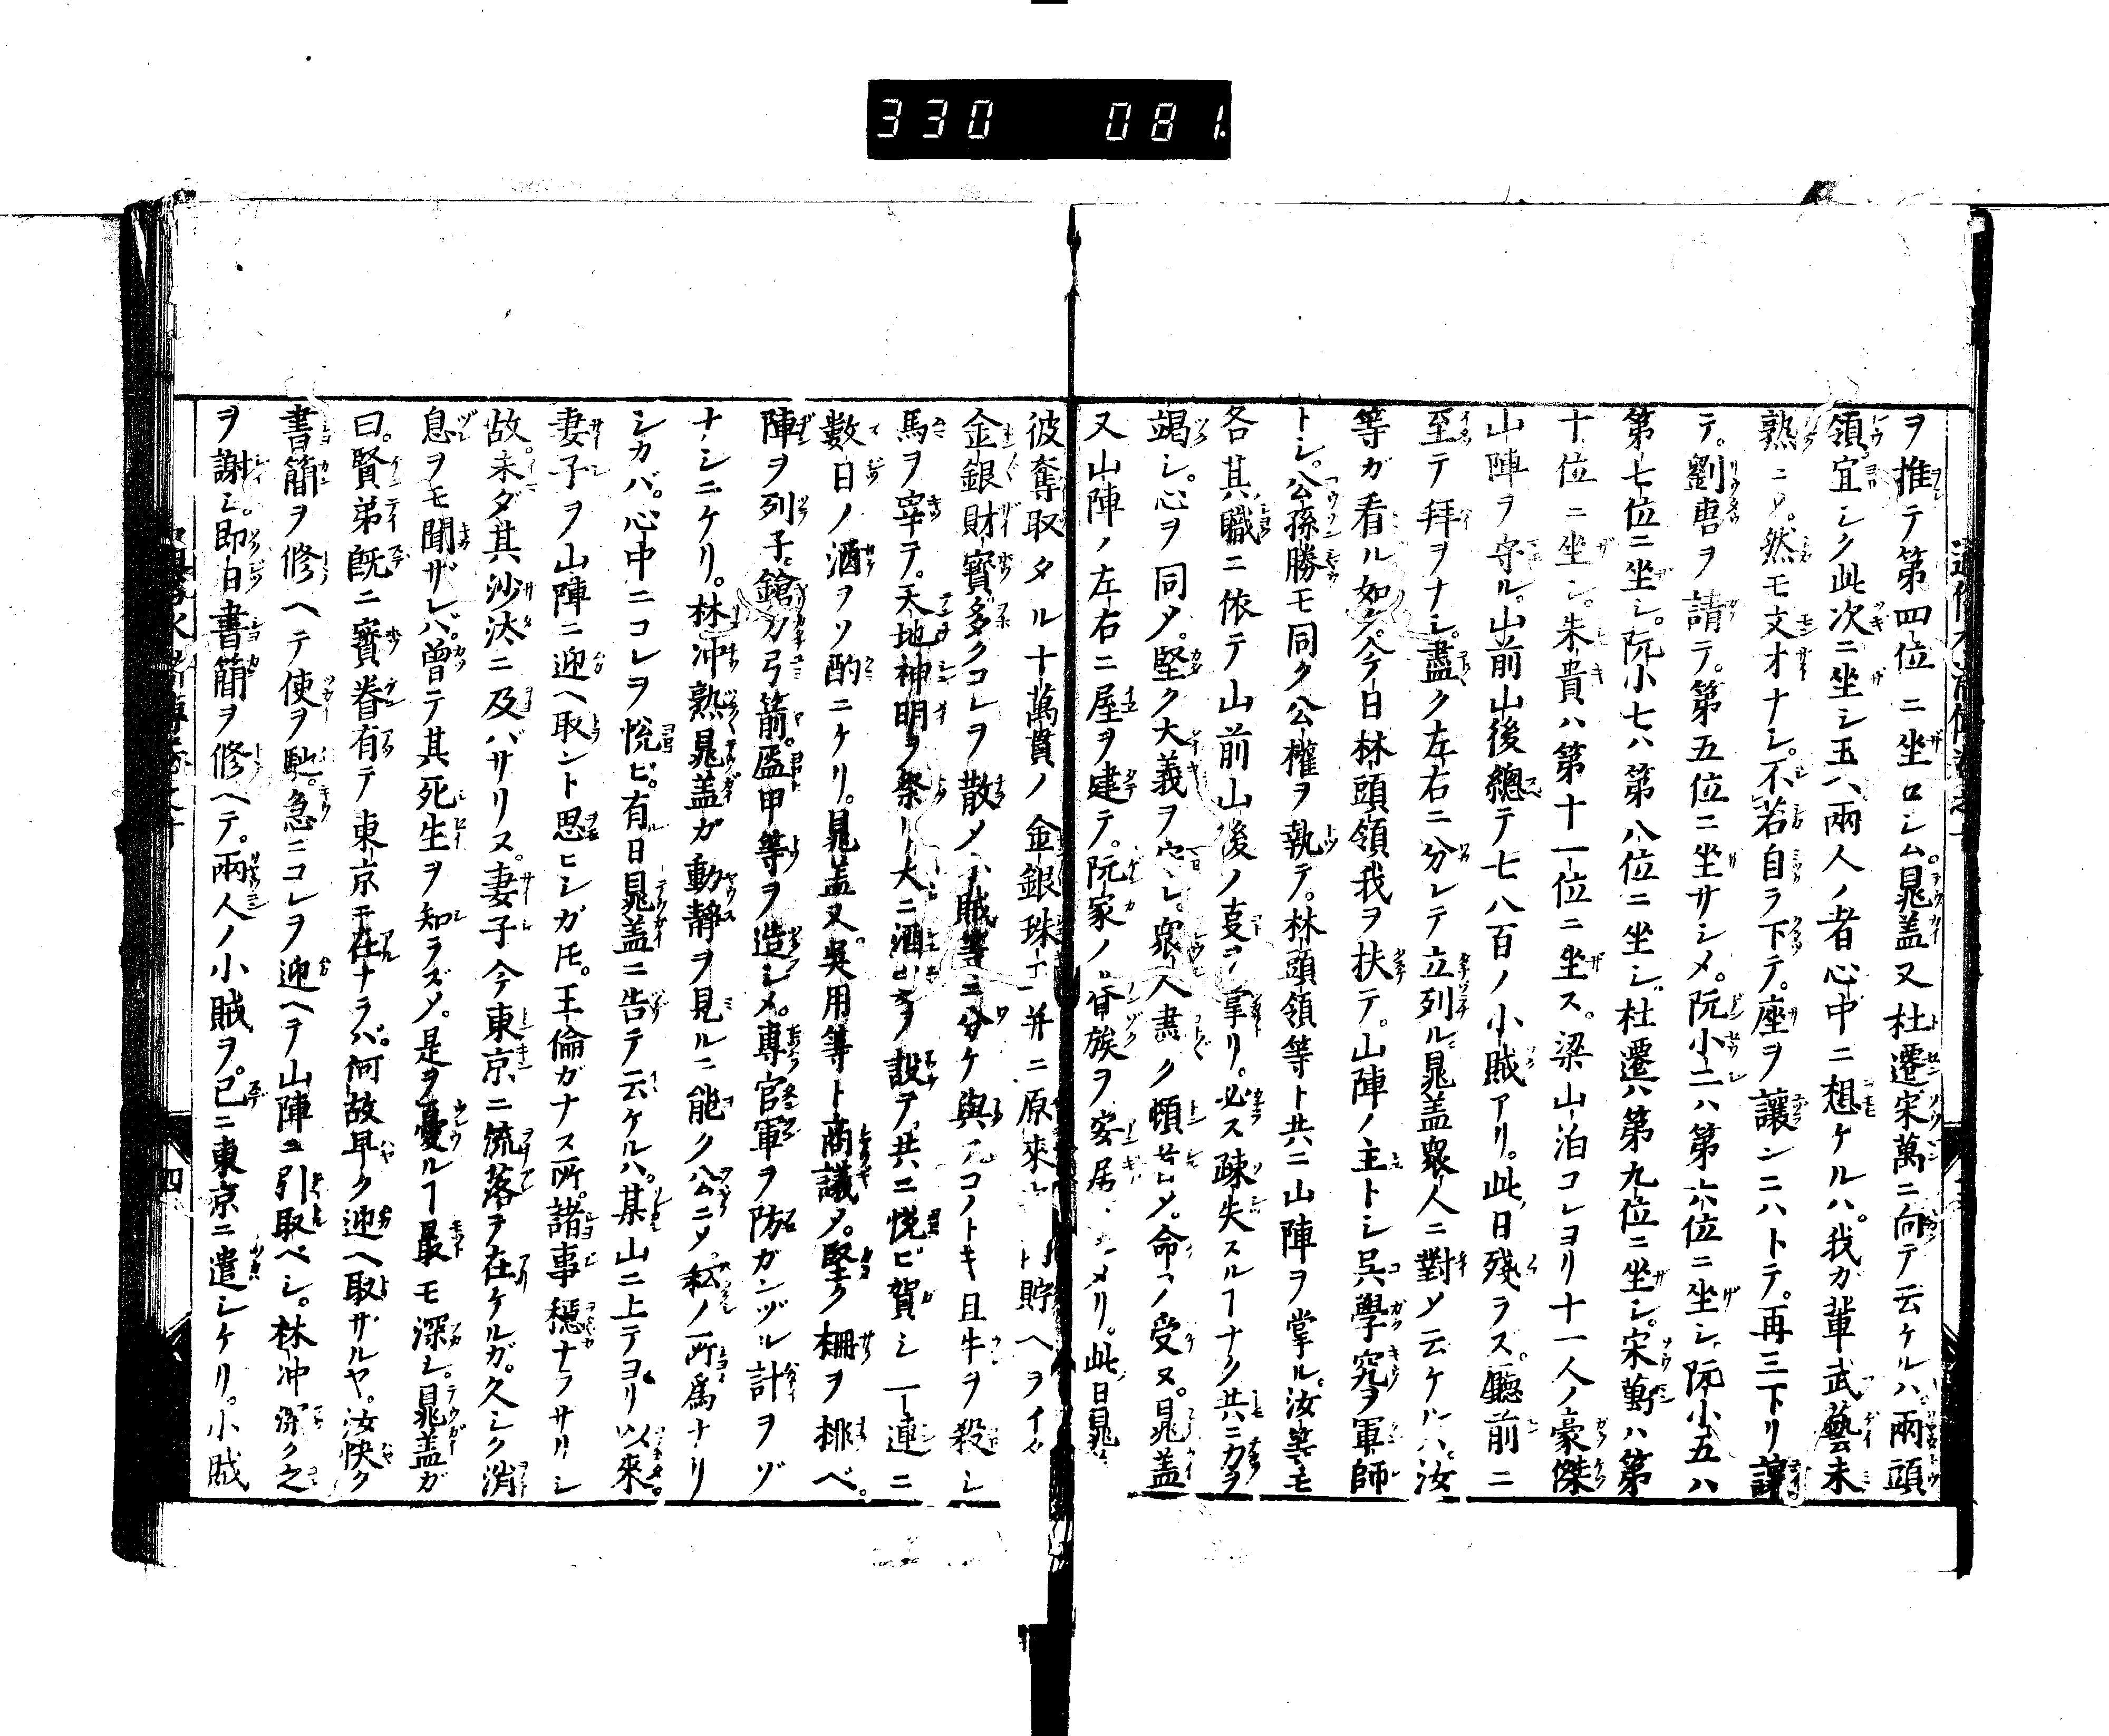 330 081.
ヲ推テ第四位ニ坐ロシム。晁盖又杜遷宋萬ニ向テ云ケルハ。兩頭
領宜シク此次ニ坐シ玉ヘ。兩人ノ者心中ニ想ケルハ。我カ輩武藝未
熟ニメ。然モ文才ナシ。不若自ラ下テ。座ヲ讓ンニハトテ。再三下リ讓
テ。劉唐ヲ請テ。第五位ニ坐サシメ。阮小二ハ第六位ニ坐シ。阮小五ハ
第七位ニ坐シ。阮小七ハ第八位ニ坐シ。杜遷ハ第九位ニ坐シ。宋萬ハ第
十位ニ坐シ。朱貴ハ第十一位ニ坐ス。梁山泊コレヨリ十一人ノ豪傑
山陣ヲ守ル。山前山後總テ七八百ノ小賊アリ。此日殘ラス。廳前ニ
至テ拜ヲナシ。盡ク左右ニ分レテ立列ル。晁盖衆人ニ對メ云ケルハ。汝
等ガ看ル如ク。今日林頭領我ヲ扶テ。山陣ノ主トシ吳學究ヲ軍師
トシ。公孫勝モ同ク公權ヲ執テ。林頭領等ト共ニ山陣ヲ掌ル。汝等モ
各其職ニ依テ山前山後ノ支ヲ掌リ。必ス疎失スルヿナク共ニ力ヲ
竭シ。心ヲ同メ。堅ク大義ヲ守レ。衆人盡ク頓首メ。命ヲ受ヌ。晁盖
又山陣ノ左右ニ屋ヲ建テ。阮家ノ眷族ヲ安居メリ。此日晁
彼奪取タル十萬貫ノ金銀珠并ニ原來貯ヘヲイタ
金銀財寶多クコレヲ散メ小賊等ニ分ケ與コノトキ且牛ヲ殺シ
馬ヲ宰テ。天地神明ヲ祭リ大ニ酒ヲ設テ共ニ悦ビ賀シ一連ニ
數日ノ酒ヲソ酌ニケリ。晁盖又吳用等ト商議メ。堅ク柵ヲ桃ベ。
陣ヲ列子。鎗刀弓箭。盔甲等ヲ造シメ。專官軍ヲ防ガンヅル計ヲゾ
ナシニケリ。林冲熟晁盖ガ動靜ヲ見ルニ能ク公ニメ。私ノ所爲ナリ
シカバ。心中ニコレヲ悦ビ。有日晁盖ニ告テ云ケルハ。某山ニ上テヨリ以來。
妻子ヲ山陣ニ迎ヘ取ント思ヒシガ𪜈。王倫ガナス所。諸事穩ナラサリシ
故。未ダ其沙汰ニ及バサリヌ。妻子今東京ニ流落ヲ在ケルガ。久シク消
息ヲモ聞ザレバ。曾テ其死生ヲ知ラズメ。是ヲ憂ルヿ最モ深シ。晁盖ガ
曰。賢弟既ニ寳眷有テ東京ニ在ナラバ。何故早ク迎ヘ取ザルヤ。汝快ク
書簡ヲ修ヘテ使ヲ馳。急ニコレヲ迎ヘテ山陣ニ引取ベシ。林冲深ク之
ヲ謝シ。即日書簡ヲ修ヘテ。兩人ノ小賊ヲ。已ニ東京ニ遣シケリ。小賊
四